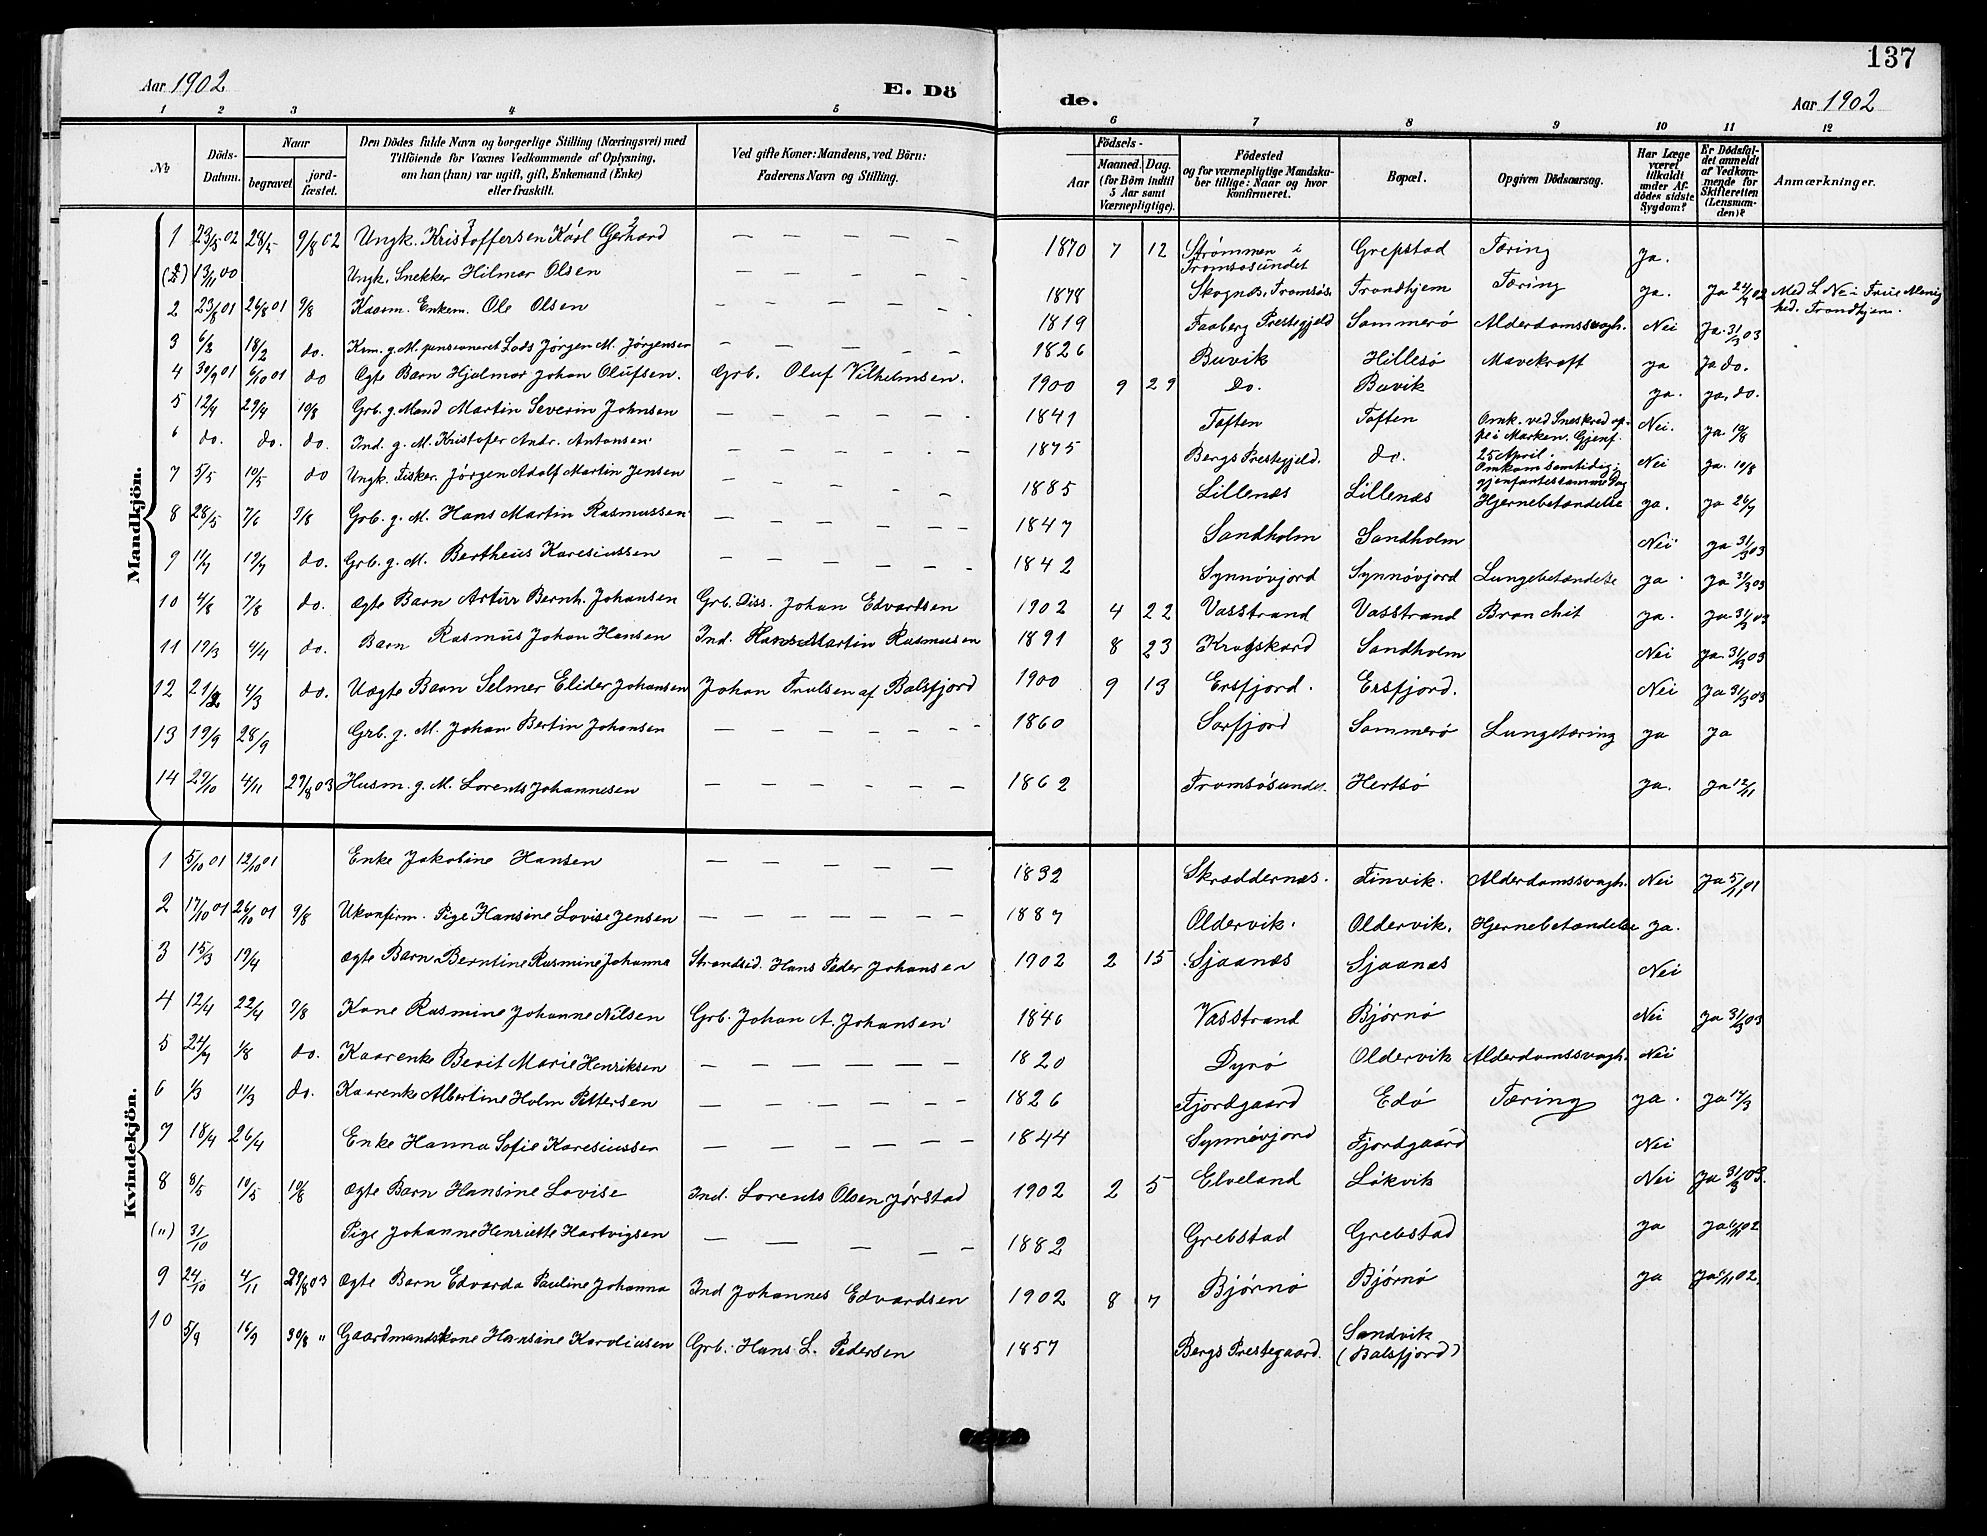 137
Aar 1902 E. Dö de. Aar 1902
1 2 3 4 5 6 7 8 9 10 11 12
No Döds-Datum. Naar begravet jordfæstet. Den Dödes fulde Navn og borgerlige Stilling (Næringsvei) med Tilföiende for Voxnes Vedkommende af Oplysning, om han (hun) var ugift, gift, Enkemand (Enke) eller fraskilt. Ved gifte Koner: Mandens, ved Börn: Faderens Navn og Stilling. Födsels- Aar Maaned. Dag. (for Börn indtil 5 Aar samt Værnepligtige). Födested og for værnepligtige Mandskaber tillige: Naar og hvor konfirmeret. Bopæl. Opgiven Dödsaarsag. Har Læge været tilkaldt under Afdödes sidste Sygdom? Er Dödsfaldet anmeldt af Vedkommende for Skifteretten (Lensmanden)? Anmærkninger.
Mandkjön.
1 23/5 02 28/5 9/8 02 Ungk. Kristoffersen Karl Gerhard — — — — — 1870 7 12 Strømmen i Tromsøsundet Grepstad Tæring ja.
(2) 13/11 00 Ungk. Snekker Hilmar Olsen — — — — — 1878 Skognæs, Tromsøs. Trondhjem Tæring ja. ja 24/4 02 Med L Ne i Frue Menighed. Trondhjem.
2 23/8 01 26/8 01 9/8 Kaarm. Enkem. Ole Olsen — — — — 1819 Faaberg Prestegjeld Sommerø Alderdomssvagh. Nei Ja. 31/3 03
3 6/2 18/2 do. Krm. g. M. pensioneret Lods Jørgen M. Jørgensen — — — — — 1826 Buvik Hillesø Mavekræft ja ja do.
4 30/9 01 6/10 01 do Ægte Barn Hjalmar Johan Olufsen. Grb. Oluf Vilhelmsen. 1900 9 29 do. Buvik ja. ja, do.
5 12/4 29/4 10/8 Grb. g. Mand Martin Severin Johnsen — — — — — 1841 Toften Toften Omk. ved Sneskred oppe i Marken. Gjenf. 25 April. Nei. ja 10/8
6 do. do. do. Ind. g. M. Kristofer Andr. Antonsen. — — — — 1875 Bergs Prestegjeld. do. Omkom samtidig; gjenfantes samme Dag Nei ja. 10/8
7 5/5 10/5 do Ungk. Fisker. Jørgen Adolf Martin Jensen — — — — — 1885 Lillenæs Lillenæs Hjernebetændelse ja. ja 26/7
8 28/5 7/6 9/8 Grb. g. M. Hans Martin Rasmussen — — — — — 1847 Sandholm Sandholm Nei ja 31/3 03
9 11/7 19/7 do. Grb. g. M. Bertheus Karesiussen — — — — — 1842 Synnøvjord Synnøvjord Lungebetændelse ja. ja 31/3 03
10 4/8 7/8 do. Ægte Barn Artur Bernh. Johansen Grb. Diss. Johan Edvardsen 1902 4 22 Vasstrand Vasstrand Bronchit ja. ja. 31/3 03
11 19/3 4/4 do. Barn Rasmus Johan Hansen Ind. Hans Martin Rasmusen 1891 8 23 Krogskard Sandholm Nei ja. 31/3 03
12 21/2 4/3 do. Uægte Barn Selmer Elider Johansen Johan Trulsen af Balsfjord 1900 9 13 Ersfjord. Ersfjord. Nei ja 31/3 03
13 19/9 28/9 Grb. g. M. Johan Bertin Johansen — — — — — 1860 Sørfjord Sommerø Lungetæring ja ja
14 29/10 4/11 27/8 03 Husm. g. M. Lorents Johannesen — — — — — 1862 Tromsøsundet. Hertsø ja. ja 12/11
Kvindekjön.
1 5/10 01 12/10 01 Enke Jakobine Hansen — — — — — 1832 Skræddernæs. Finvik. Alderdomssvagh. Nei ja 5/11 01
2 17/10 01 26/10 01 9/8 Ukonfirm. Pige Hansine Lovise Jensen — — — — — 1887 Oldervik. Oldervik. Hjernebetændelse ja.
3 15/3 19/4 Ægte Barn Berntine Rasmine Johanna Strandsid. Hans Peder Johansen 1902 2 15 Sjaanæs Sjaanæs Nei
4 12/4 22/4 9/8 Kone Rasmine Johanne Nilsen Grb. Johan A. Johansen 1846 Vasstrand Bjørnø Nei ja 31/3 03
5 24/7 1/8 do. Kaarenke Berit Marie Henriksen — — — — — 1820 Dyrø Oldervik Alderdomssvagh. Nei
6 1/3 11/3 do. Kaarenke Albertine Holm Pettersen — — — — — 1826 Fjordgaard Edø Tæring ja. ja 17/3
7 18/4 26/4 Enke Hanna Sofie Karesiussen — — — — — 1844 Synnøvjord Fjordgaard Nei
8 8/5 10/5 10/8 Ægte Barn Hansine Lovise Ind. Lorents Olsen Jørstad 1902 2 5 Elveland Løkvik Nei ja 31/3 03.
(") 31/10 Pige Johanne Henriette Hartvigsen — — — — — 1882 Grebstad Grebstad ja ja 6/11 02
9 24/10 4/11 29/8 03 Ægte Barn Edvarda Pauline Johanna Ind Johannes Edvardsen 1902 8 7 Bjørnø Bjørnø ja ja 6/11 02.
10 5/9 16/9 30/8 " Gaardmandskone Hansine Karoliusen Grb. Hans L. Pedersen 1857 Bergs Prestegaard. Sandvik (Balsfjord)